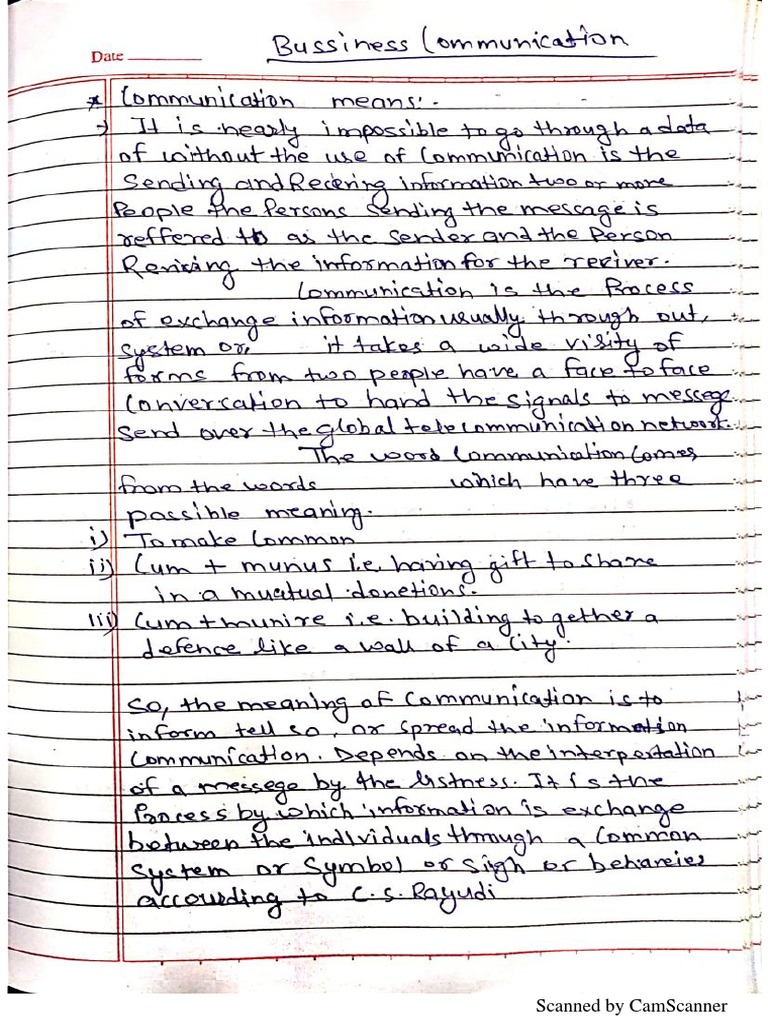 Bussiness Communication
Date
* Communication means:-
→ It is nearly impossible to go through a data
of without the use of Communication is the
Sending and Recering information two or more
People the Persons sending the message is
reffered to as the sender and the Person
Reviving the information for the reciver.
Communication is the Process
of exchange information usually through out,
system or, it takes a wide visity of
forms from two people have a face to face
Conversation to hand the signals to message
Send over the global telecommunication network.
The word Communication Comes
from the words which have three
possible meaning.
i) To make Common
ii) Cum + munus i.e. having gift to share
in a muatual donetions.
iii) Cum + munire i.e. building to gether a
defence like a wall of a City.
So, the meaning of Communication is to
inform tell so, or spread the information
Communication. Depends on the interpertation
of a messege by the listness. It is the
Process by which information is exchange
between the individuals through a Common
System or Symbol or sigh or behaveies
accourding to C.S. Rayudi
Scanned by CamScanner